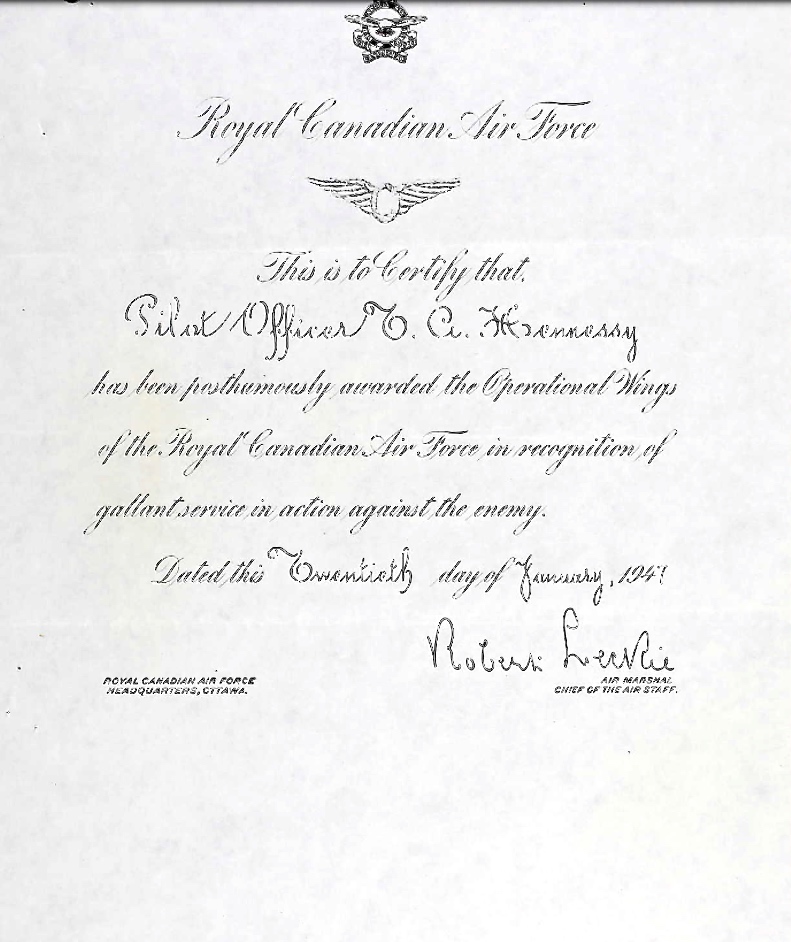 Royal Canadian Air Force
This is to Certify that.
Pilot Officer T. A. Hennessy
has been posthumously awarded the Operational Wings
of the Royal Canadian Air Force, in recognition of
gallant service in action against the enemy.
Dated this Twentieth day of January,
Robert Leckie
ROYAL CANADIAN AIR FORCE
HEADQUARTERS, OTTAWA.
AIR MARSHAL
CHIEF OF THE AIR STAFF.